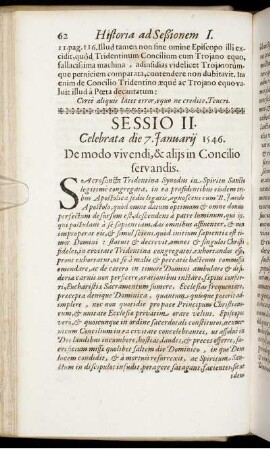 62 Historia ad Seßionem I.
11.pag.116.Illud tamen non sine omine Episcopo illi ex-
cidit,quòd Tridentinum Concilium cum Trojano equo,
fallacissima machina, ad insidias videlicet Trojanorum-
que perniciem comparata, contendere non dubitavit. In
enim de Concilio Tridentino æquè ac Trojano equo va-
luit illud à Poeta decantatum:
Certè aliquis latet error, equo ne credite, Teucri.
SESSIO II.
Celebrata die 7. Januarij 1546.
De modo vivendi, & alijs in Concilio
servandis.
SAcrosancta Tridentina Synodus in Spiritu Sancto
legitimè congregata, in ea præsidentibus eisdem tri-
bus Apostolicæ sedis legatis, agnoscens cum B. Jacobo
Apostolo, quòd omne datum optimum & omne donum
perfectum desursum est, descendens à patre luminum, qui ijs,
qui postulant à se sapientiam, dat omnibus affluenter, & non
improperat eis, & simul sciens, quòd initium sapientiæ est ti-
mor Domini : statuit & decrevit omnes & singulos Christi
fideles, in civitate Tridentina congregatos, exhortandos esse,
prout exhortatur, ut se à malis & peccatis hactenus commissis
emendare, ac de cætero in timore Domini ambulare & de-
sideria carnis non perficere, orationibus instare, sæpius confite-
ri, Eucharistiæ Sacramentum sumere. Ecclesias frequentare,
præcepta denique Dominica, quantum quisque poterit ad-
implere, nec non quotidie pro pace Principum Christiano-
rum, & unitate Ecclesiæ privatim orare velint. Episcopos
verò, & quoscunque in ordine sacerdotali constitutos, œcume-
nicum Concilium in ea civitate concelebrantes, ut assiduè in
Dei laudibus incumbere, hostias, laudes, & preces offerre, sa-
crificium missæ quolibet saltem die Dominico, in quo Deus
lucem condidit, & à mortuis resurrexit, ac Spiritum San-
ctum in discipulos infudit, peragere satagant, facientes, sicut
idem